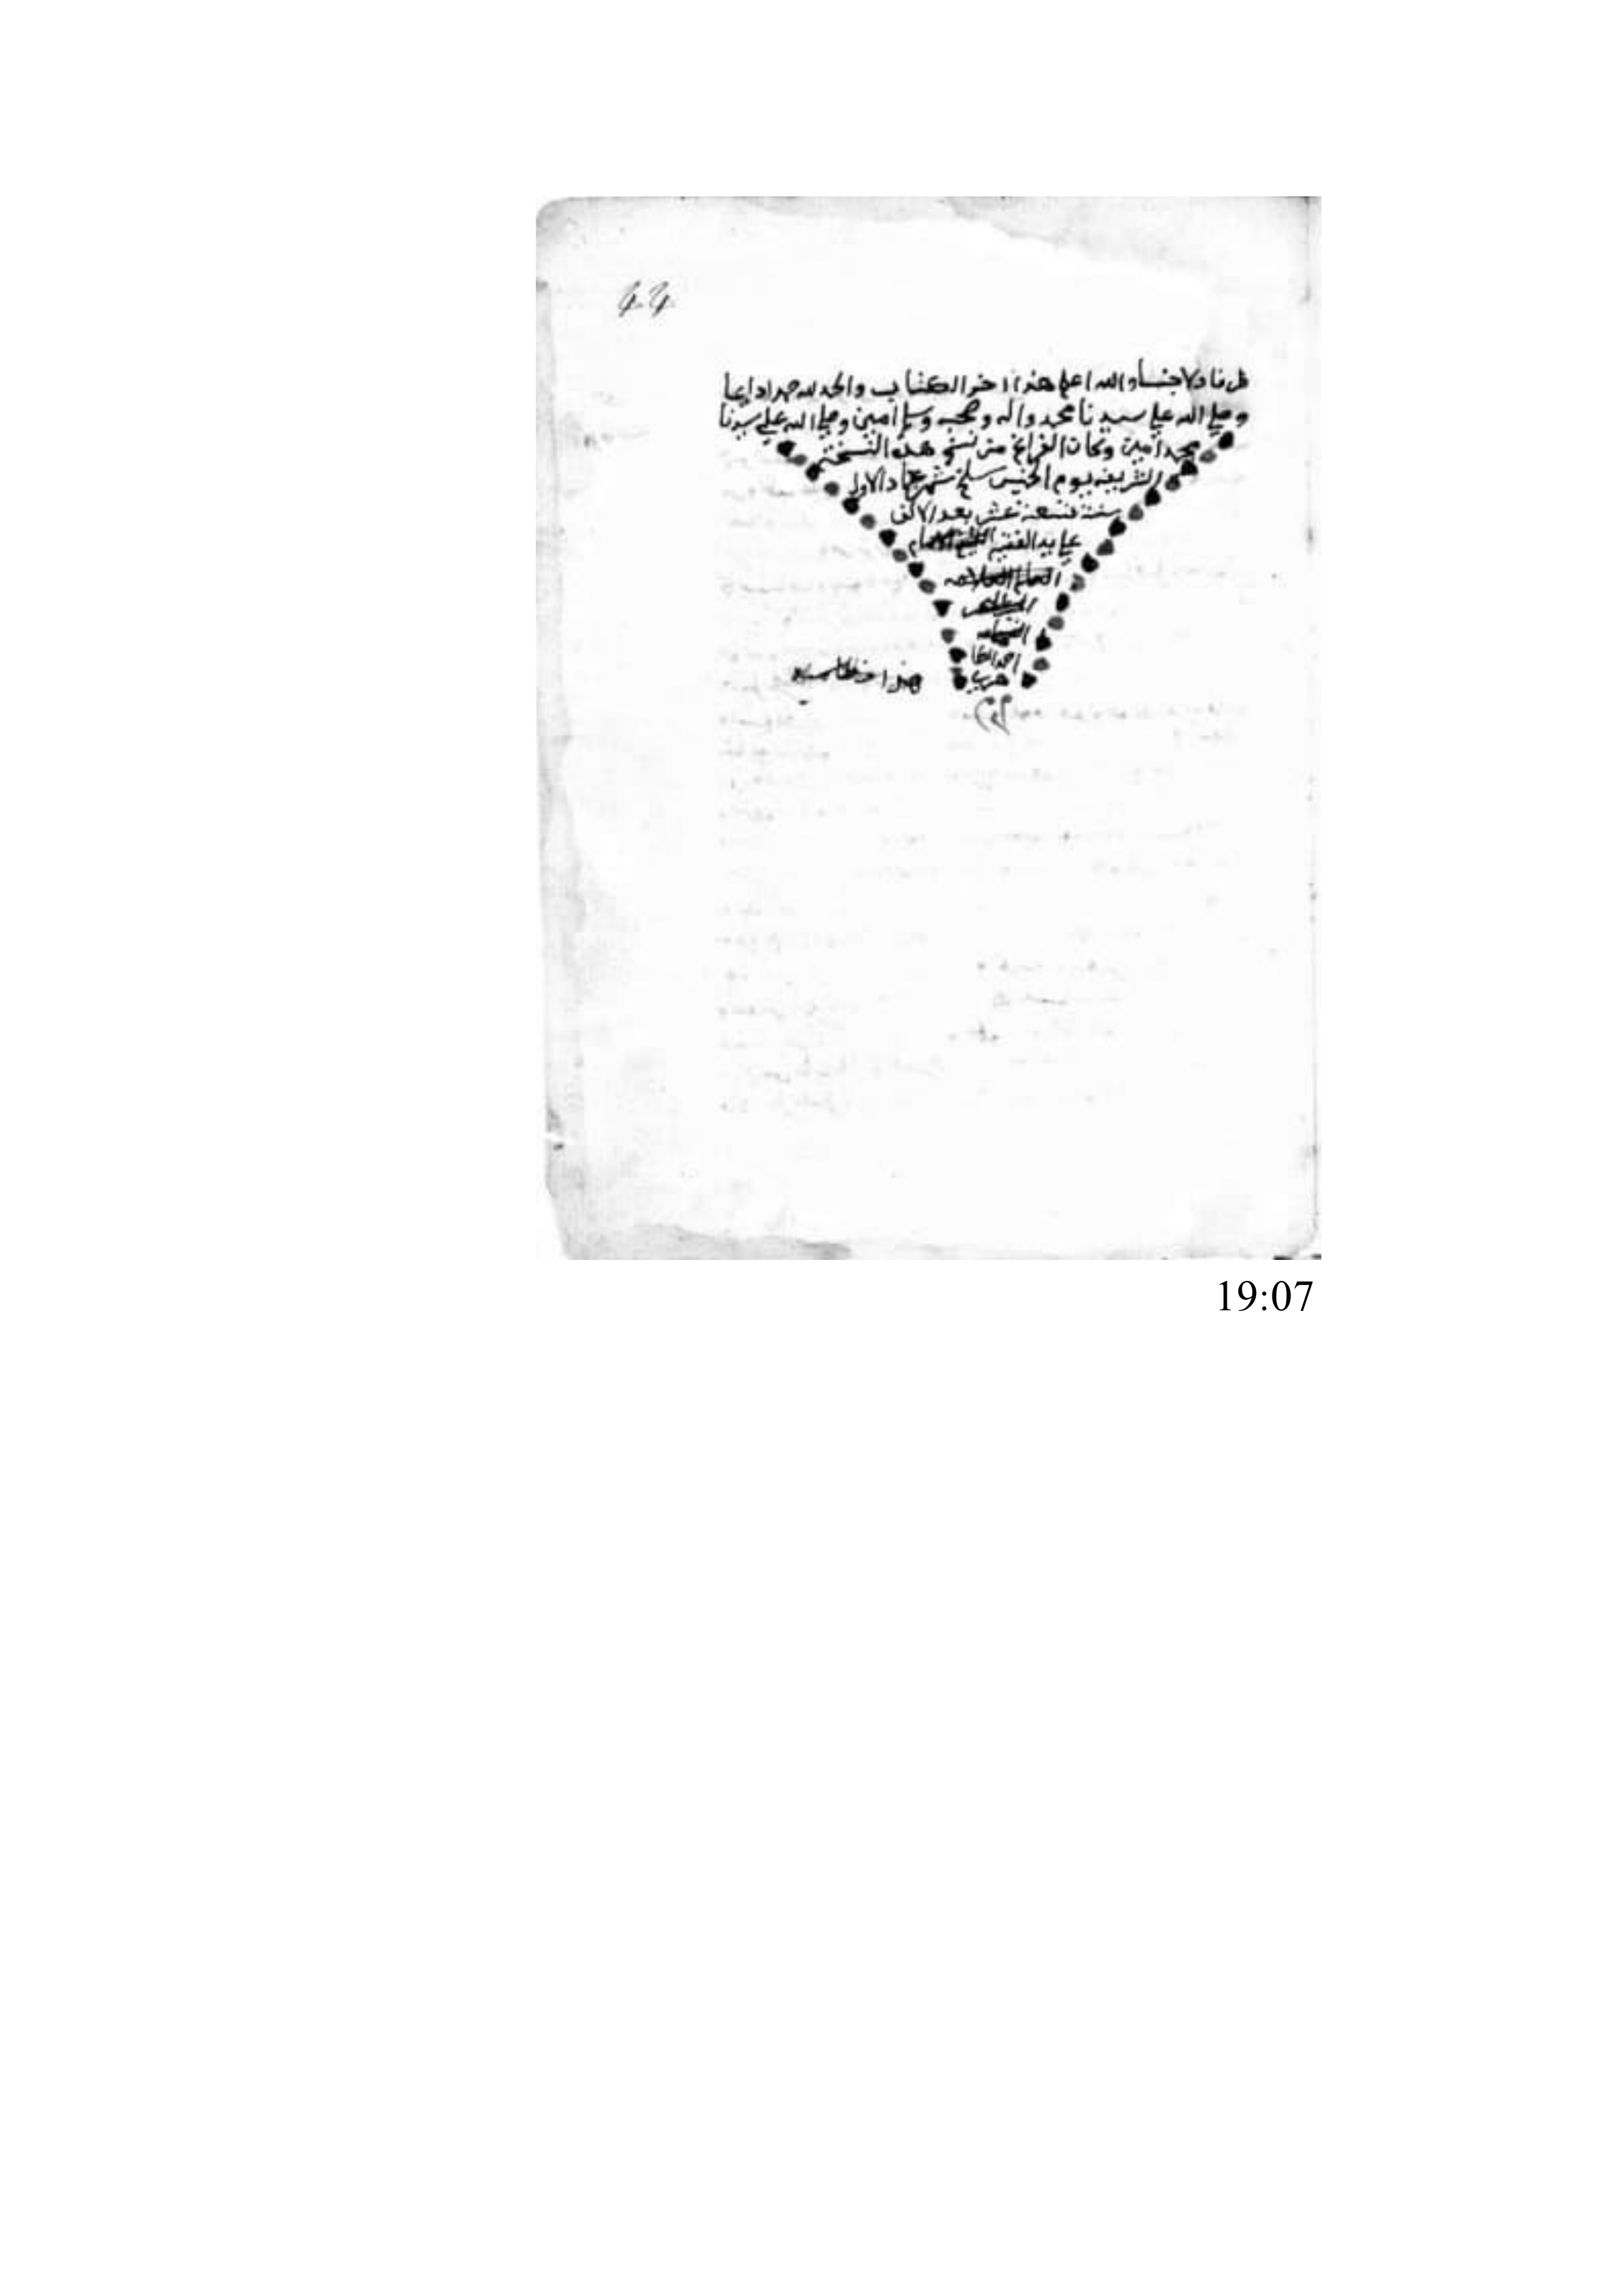 44
والله اعلم هذا اخر الكتاب والحمد لله حمدا دايما
وصلي الله علي سيدنا محمد واله وصحبه وسلم امين وصلي الله علي سيدنا
محمد امين وكان الفراغ من نسخ هذه النسخة
الشريفه يوم الخميس سلخ شهر جماد الاول
سنة تسعة عشر بعد الالف
علي يد الفقير
العالم العلامه
احمد
هذا
19:07